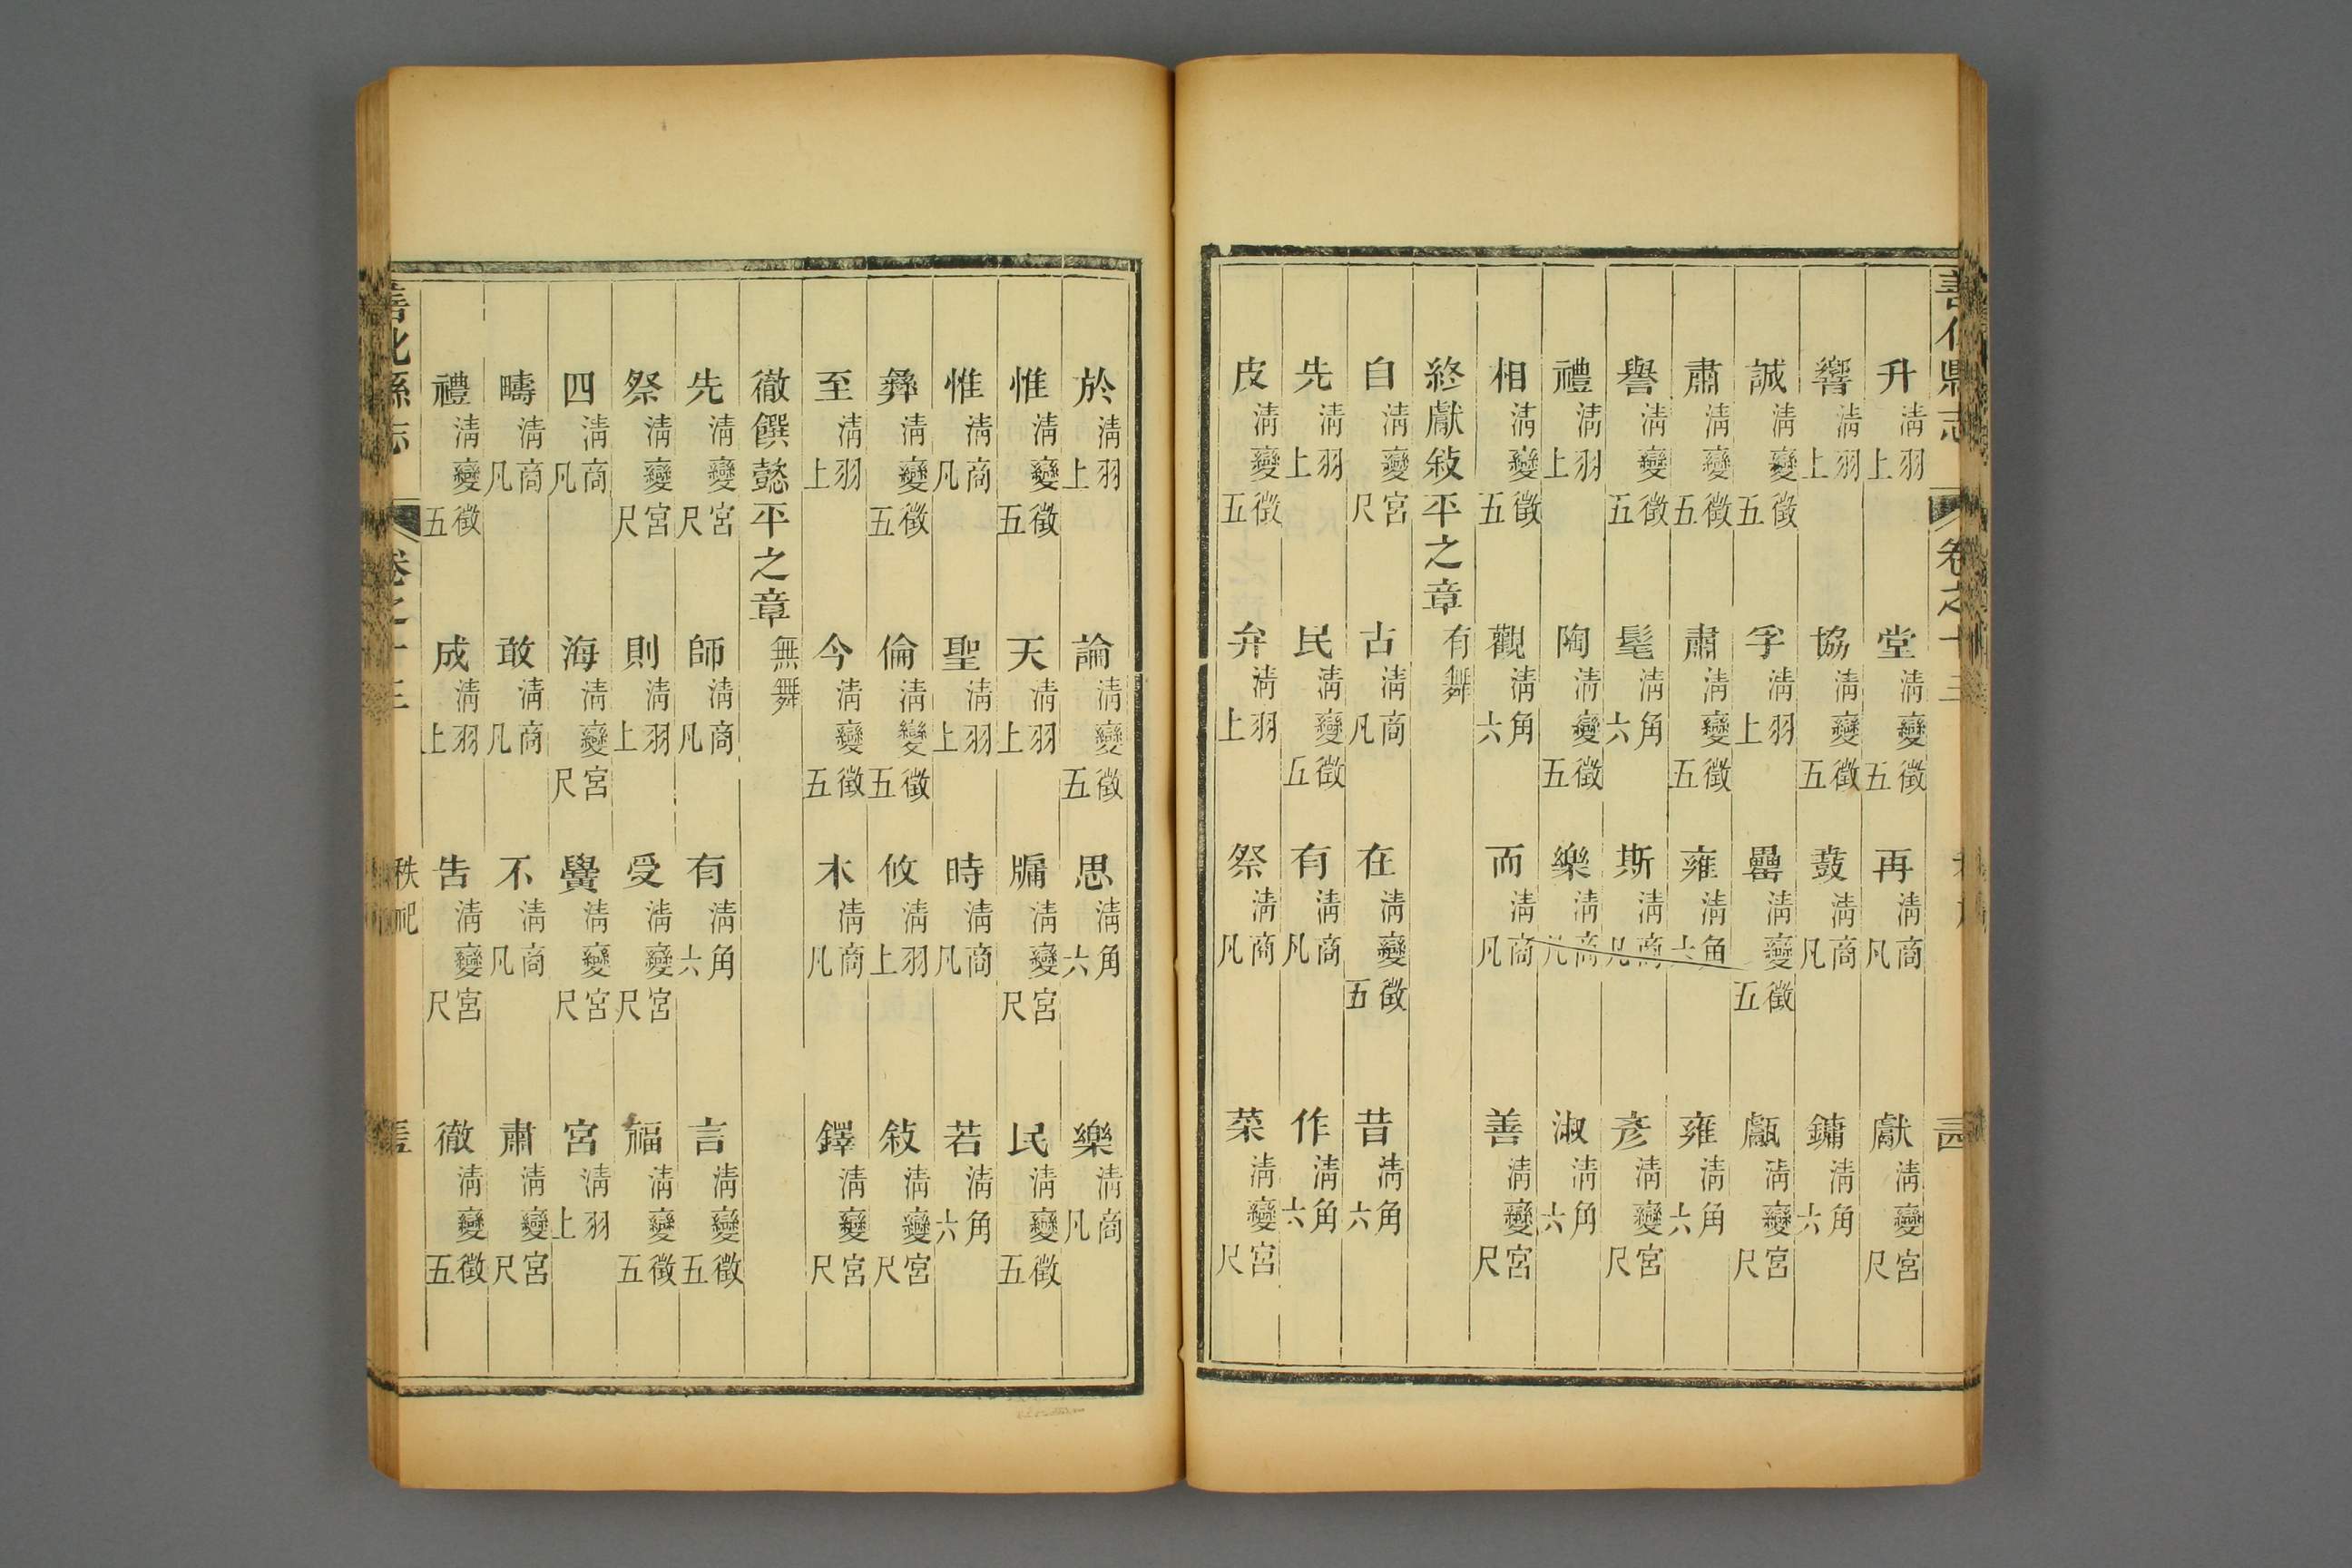 善化縣志 卷之十三
升清羽上 堂清變徵五 再清商凡 獻清變宮尺
響清羽上 協清變徵五 鼓清商凡 鏞清角六
誠清變徵五 孚清羽上 罍清變徵五 甗清變宮尺
肅清變徵五 肅清變徵五 雍清角六 雍清角六
譽清變徵五 髦清角六 斯清商凡 彥清變宮尺
禮清羽上 陶清變徵五 樂清商凡 淑清角六
相清變徵五 觀清角六 而清商凡 善清變宮尺
終獻敘平之章 有舞
自清變宮尺 古清商凡 在清變徵五 昔清角六
先清羽上 民清變徵五 有清商凡 作清角六
皮清變徵五 弁清羽上 祭清商凡 菜清變宮尺
於清羽上 論清變徵五 思清角六 樂清商凡
惟清變徵五 天清羽上 牖清變宮尺 民清變徵五
惟清商凡 聖清羽上 時清商凡 若清角六
彝清變徵五 倫清變徵五 攸清羽上 敘清變宮尺
至清羽上 今清變徵五 木清商凡 鐸清變宮尺
徹饌懿平之章 無舞
先清變宮尺 師清商凡 有清角六 言清變徵五
祭清變宮尺 則清羽上 受清變宮尺 福清變徵五
四清商凡 海清變宮尺 黌清變宮尺 宮清羽上
疇清商凡 敢清商凡 不清商凡 肅清變宮尺
禮清變徵五 成清羽上 告清變宮尺 徹清變徵五
善化縣志 卷之十三 秩祀